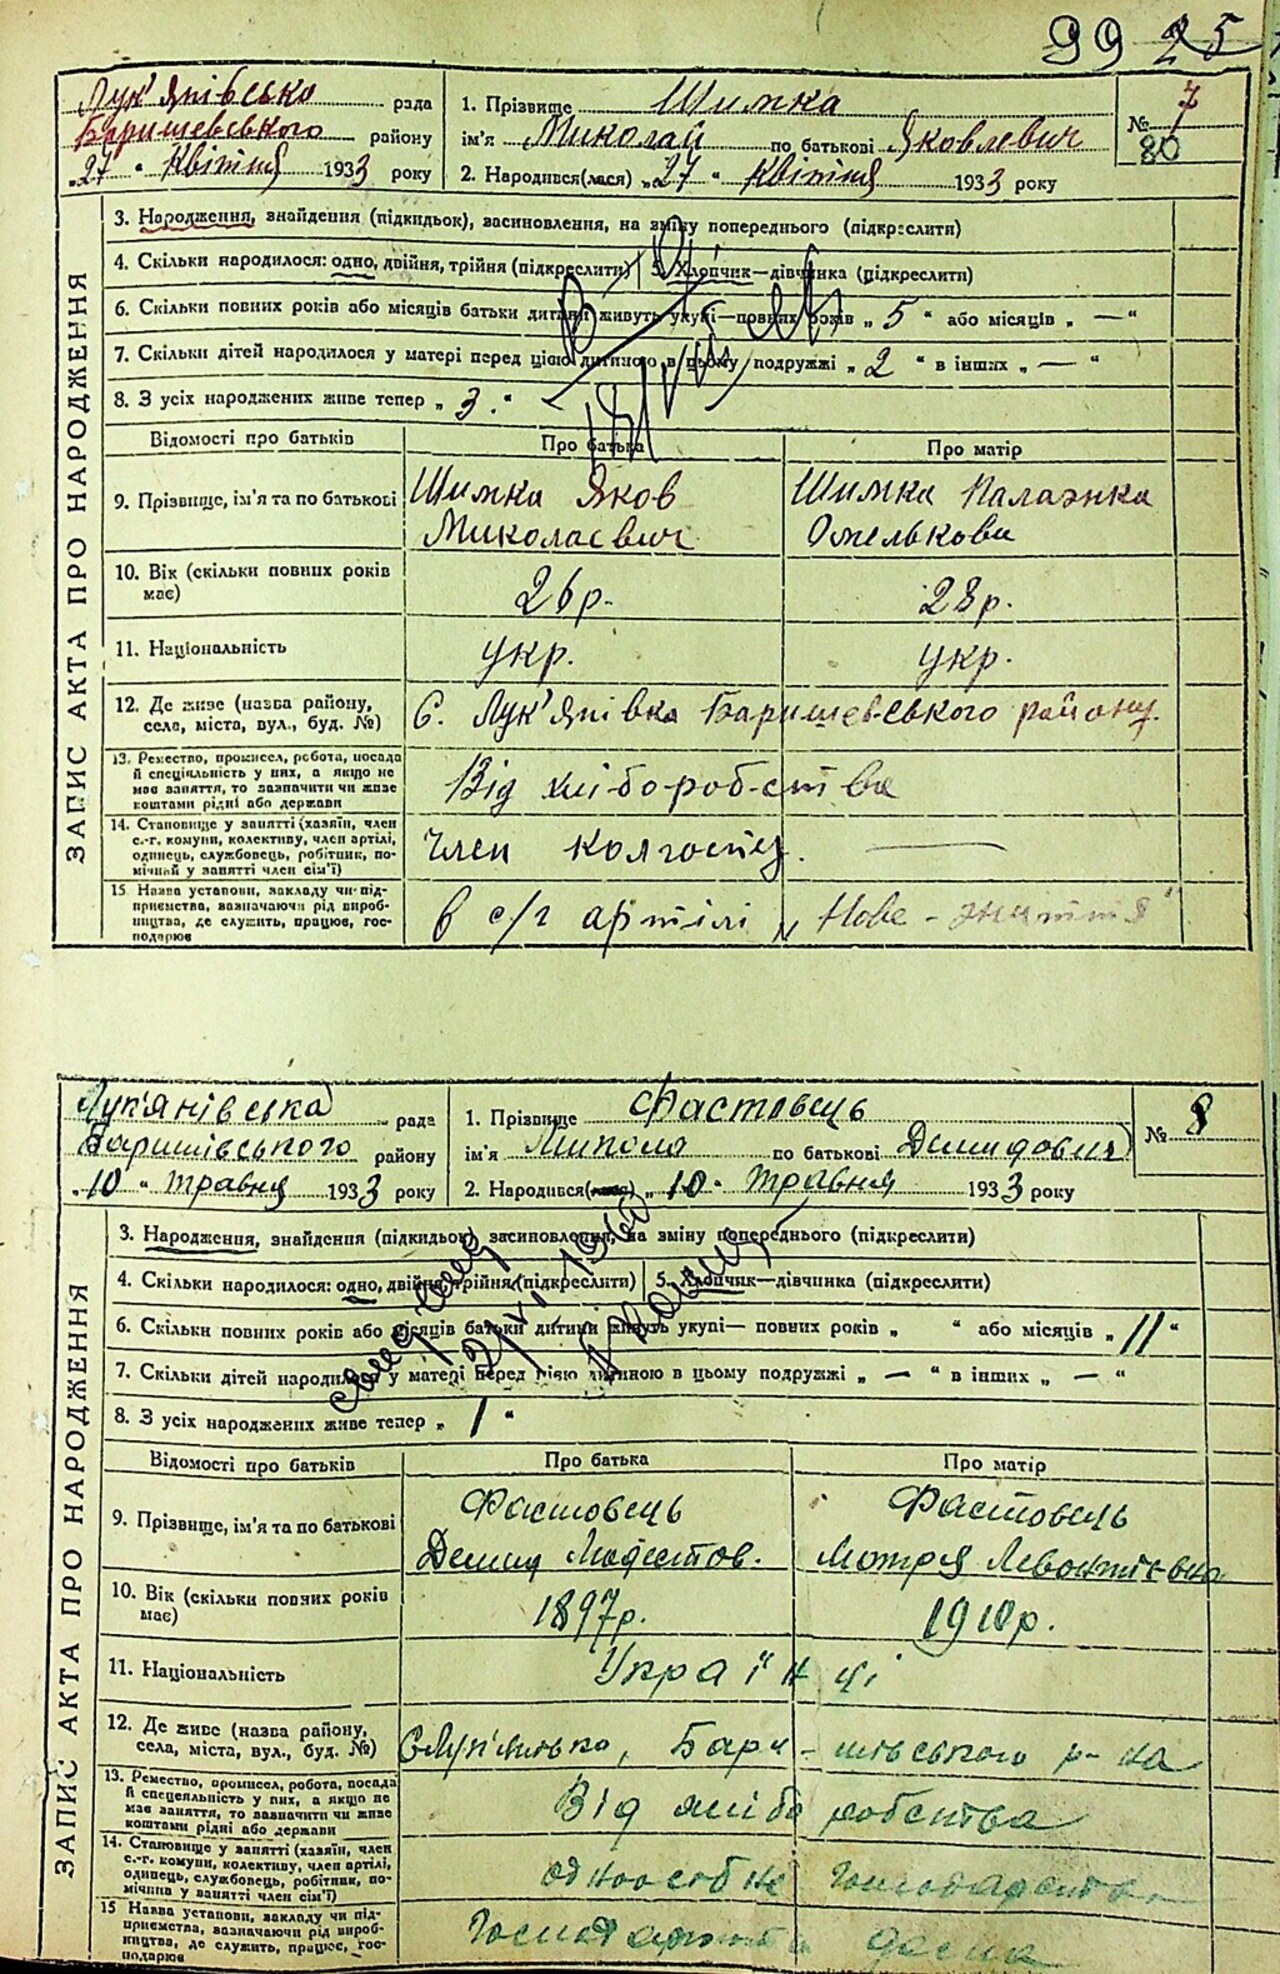 99 25
Лук'янівсько рада
Баришевського району
„27 " Квітня 1933 року
1. Прізвище Шимка
ім'я Миколай по батькові Яковлевич
2. Народився(лася) „27 " Квітня 1933 року
№ 7
80
ЗАПИС АКТА ПРО НАРОДЖЕННЯ
3. Народження, знайдення (підкидьок), засиновлення, на зміну попереднього (підкреслити)
4. Скільки народилося: одно, двійня, трійня (підкреслити) 5. Хлопчик—дівчинка (підкреслити)
6. Скільки повних років або місяців батьки дитини живуть укупі—повних років „ 5 " або місяців „ — "
7. Скільки дітей народилося у матері перед цією дитиною в цьому подружжі „ 2 " в інших „ — "
8. З усіх народжених живе тепер „ 3. "
Відомості про батьків Про батька Про матір
9. Прізвище, ім'я та по батькові
Шимка Яков
Миколаєвич
Шимка Палажка
Омелькови
10. Вік (скільки повних років
має)
26 р. 28 р.
11. Національність укр. укр.
12. Де живе (назва району,
села, міста, вул., буд. №)
С. Лук'янівка Баришевського району.
13. Ремество, промисел, робота, посада
й спеціяльність у них, а якщо не
має заняття, то зазначити чи живе
коштами рідні або держави
Від хліборобства
14. Становище у занятті (хазяїн, член
с.-г. комуни, колективу, член артілі,
одинець, службовець, робітник, по-
мічний у занятті член сім'ї)
Член колгоспу. —
15 Назва установи, закладу чи під-
приємства, зазначаючи рід вироб-
ництва, де служить, працює, гос-
подарює
в с/г артілі „Нове-життя"
Лук'янівська рада
Баришівського району
„10 " травня 1933 року
1. Прізвище Фастовець
ім'я Микола по батькові Демидович
2. Народився(лася) „ 10 " травня 1933 року
№ 8
ЗАПИС АКТА ПРО НАРОДЖЕННЯ
3. Народження, знайдення (підкидьок), засиновлення, на зміну попереднього (підкреслити)
4. Скільки народилося: одно, двійня, трійня (підкреслити) 5. Хлопчик—дівчинка (підкреслити)
6. Скільки повних років або місяців батьки дитини живуть укупі— повних років „ " або місяців „ 11 "
7. Скільки дітей народилося у матері перед цією дитиною в цьому подружжі „ — " в інших „ — "
8. З усіх народжених живе тепер „ 1 "
Відомості про батьків Про батька Про матір
9. Прізвище, ім'я та по батькові
Фастовець
Демид Модестов.
Фастовець
Мотря Левонтієвна
10. Вік (скільки повних років
має)
1897р. 1910р.
11. Національність Українці
12. Де живе (назва району,
села, міста, вул., буд. №)
с Лук'янівка, Баришівського р-на
13. Ремество, промисел, робота, посада
й спецеяльність у них, а якщо не
має заняття, то зазначити чи живе
коштами рідні або держави
Від хліборобства
14. Становище у занятті (хазяїн, член
с.-г. комуни, колективу, член артілі,
одинець, службовець, робітник, по-
мічник у занятті член сім'ї)
одноосібне
15 Назва установи, закладу чи під-
приємства, зазначаючи рід вироб-
ництва, де служить, працює, гос-
подарює